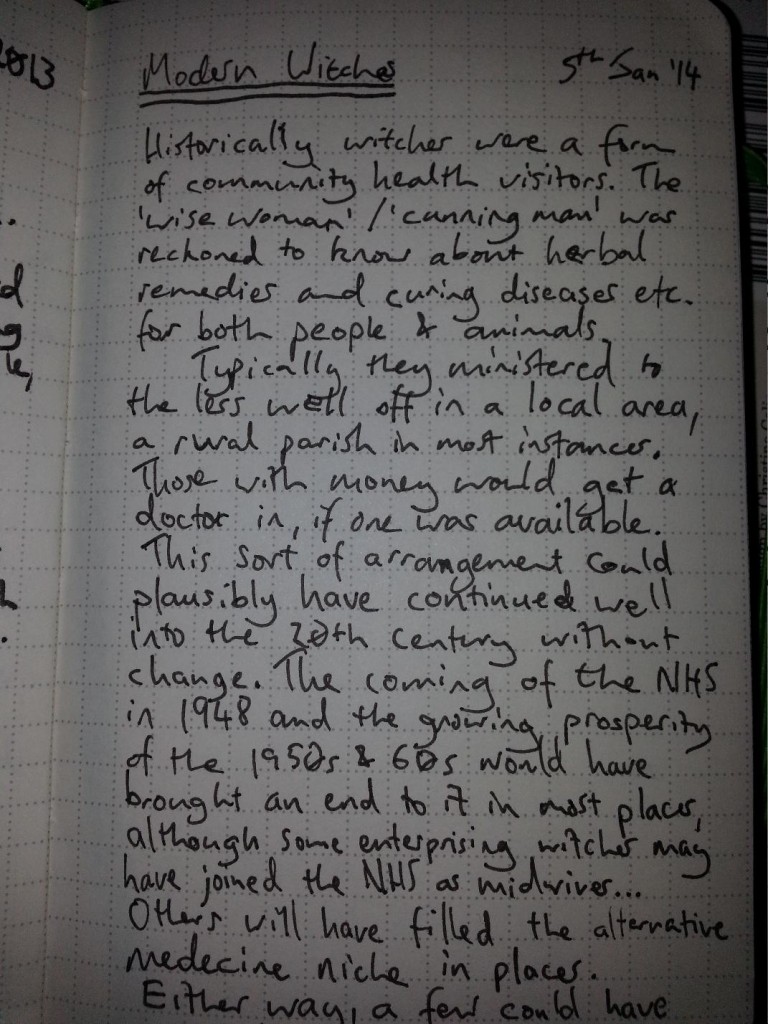 2013
Modern Witches
5th Jan '14
Historically witches were a form
of community health visitors. The
'wise woman' / 'cunning man' was
reckoned to know about herbal
remedies and curing diseases etc.
for both people & animals.
Typically they ministered to
the less well off in a local area,
a rural parish in most instances.
Those with money would get a
doctor in, if one was available.
This sort of arrangement could
plausibly have continued well
into the 20th century without
change. The coming of the NHS
in 1948 and the growing prosperity
of the 1950s & 60s would have
brought an end to it in most places,
although some enterprising witches may
have joined the NHS as midwives...
Others will have filled the alternative
medecine niche in places.
Either way, a few could have